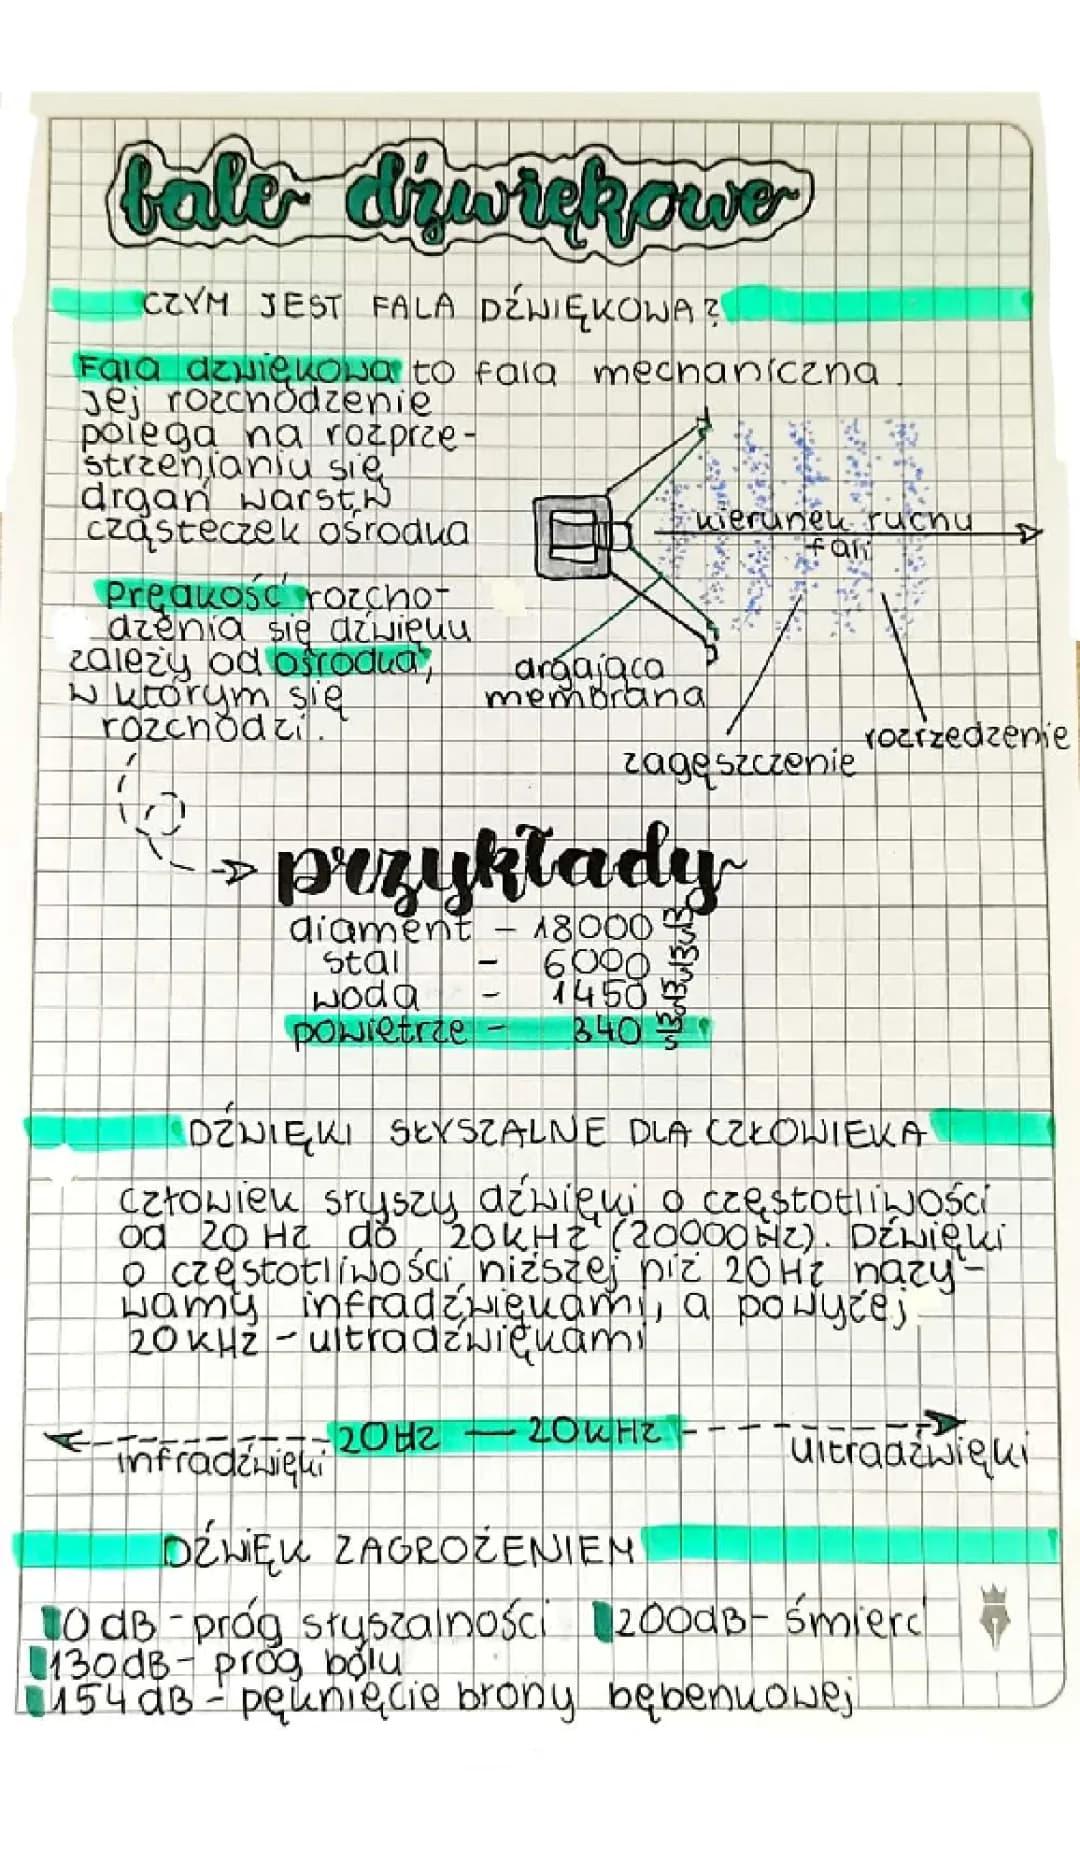 fale dźwiękowe
CZYM JEST FALA DŹWIĘKOWA?
Fala dzwiękowa to fala mechaniczna.
Jej rozchodzenie
polega na rozprze-
strzenianiu się
drgań warstw
cząsteczek ośrodka
kierunek ruchu
fali
Prędkość rozcho-
dzenia się dźwięku
zależy od ośrodka,
w którym się
rozchodzi.
drgająca
membrana
zagęszczenie
rozrzedzenie
przykłady
diament - 18000 m/s
stal - 6000 m/s
woda - 1450 m/s
powietrze - 340 m/s
DŹWIĘKI SŁYSZALNE DLA CZŁOWIEKA
Człowiek słyszy dźwięki o częstotliwości
od 20 Hz do 20kHz (20000Hz). Dźwięki
o częstotliwości niższej niż 20Hz nazy-
wamy infradźwiękami, a powyżej
20kHz - ultradźwiękami
infradźwięki 20Hz — 20kHz ultradźwięki
DŹWIĘK ZAGROŻENIEM
0dB - próg słyszalności 200dB - śmierć
130dB - próg bólu
154dB - pęknięcie brony bębenkowej